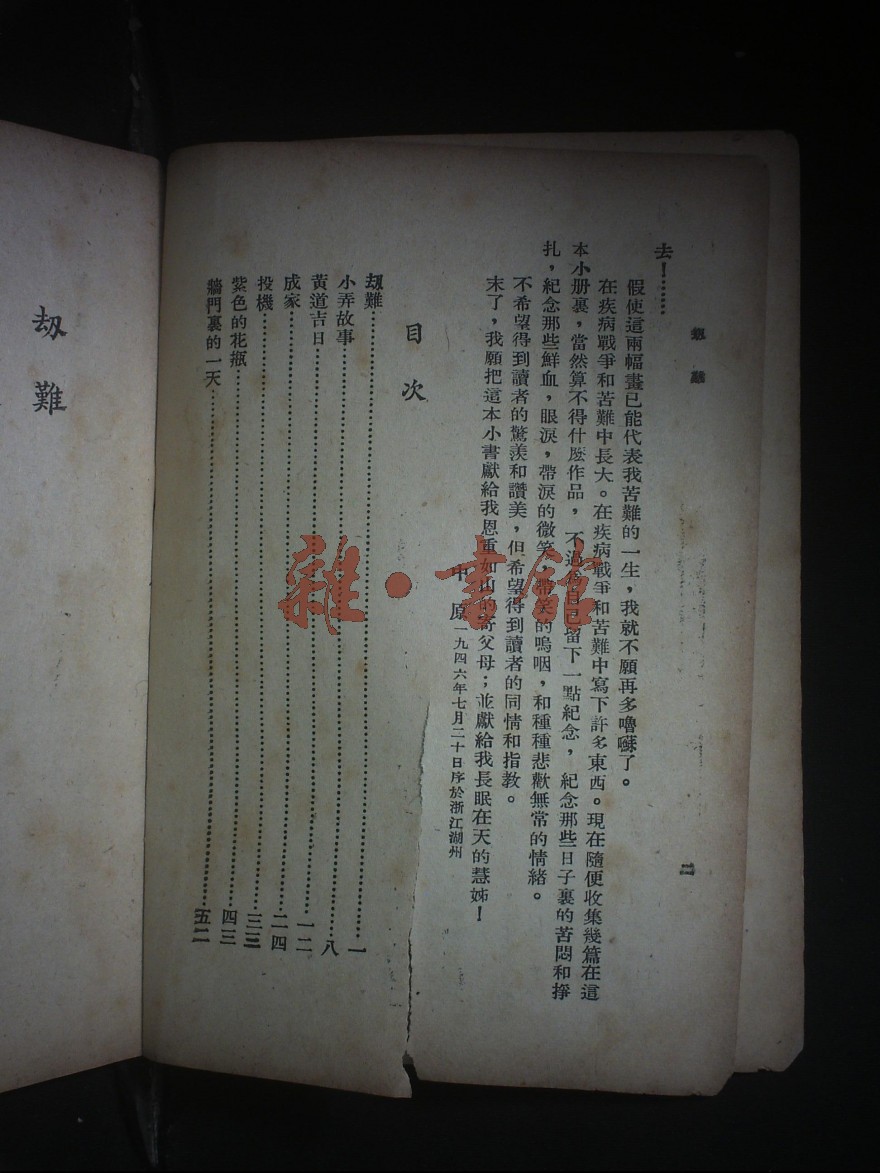 劫難
去！……
假使這兩幅畫已能代表我苦難的一生，我就不願再多嚕囌了。
在疾病戰爭和苦難中長大。在疾病戰爭和苦難中寫下許多東西。現在隨便收集幾篇在這
本小册裏，當然算不得什麽作品，不過為自己留下一點紀念，紀念那些日子裏的苦悶和掙
扎，紀念那些鮮血，眼淚，帶淚的微笑，帶笑的嗚咽，和種種悲歡無常的情緒。
不希望得到讀者的驚羨和讚美，但希望得到讀者的同情和指教。
末了，我願把這本小書獻給我恩重如山的寄父母；並獻給我長眠在天的慧姊！
中原 一九四六年七月二十日序於浙江湖州
目次
劫難……一
小弄故事……八
黃道吉日……一二
成家……二四
投機……三三
紫色的花瓶……四三
牆門裏的一天……五二
二
劫難
雜·書館